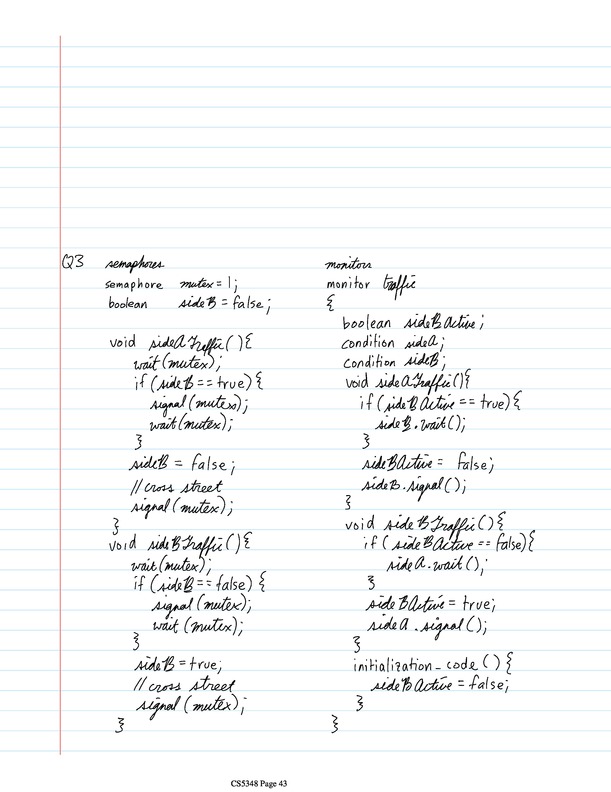 Q3 semaphores
semaphore mutex = 1;
boolean sideB = false;
void sideATraffic(){
wait(mutex);
if (sideB == true){
signal(mutex);
wait(mutex);
}
sideB = false;
// cross street
signal(mutex);
}
void sideBTraffic(){
wait(mutex);
if (sideB == false) {
signal(mutex);
wait(mutex);
}
sideB = true;
// cross street
signal(mutex);
}
monitors
monitor traffic
{
boolean sideBActive;
condition sideA;
condition sideB;
void sideATraffic(){
if (sideBActive == true){
sideB.wait();
}
sideBActive = false;
sideB.signal();
}
void sideBTraffic(){
if (sideBActive == false){
sideA.wait();
}
sideBActive = true;
sideA.signal();
}
initialization_code(){
sideBActive = false;
}
}
CS5348 Page 43